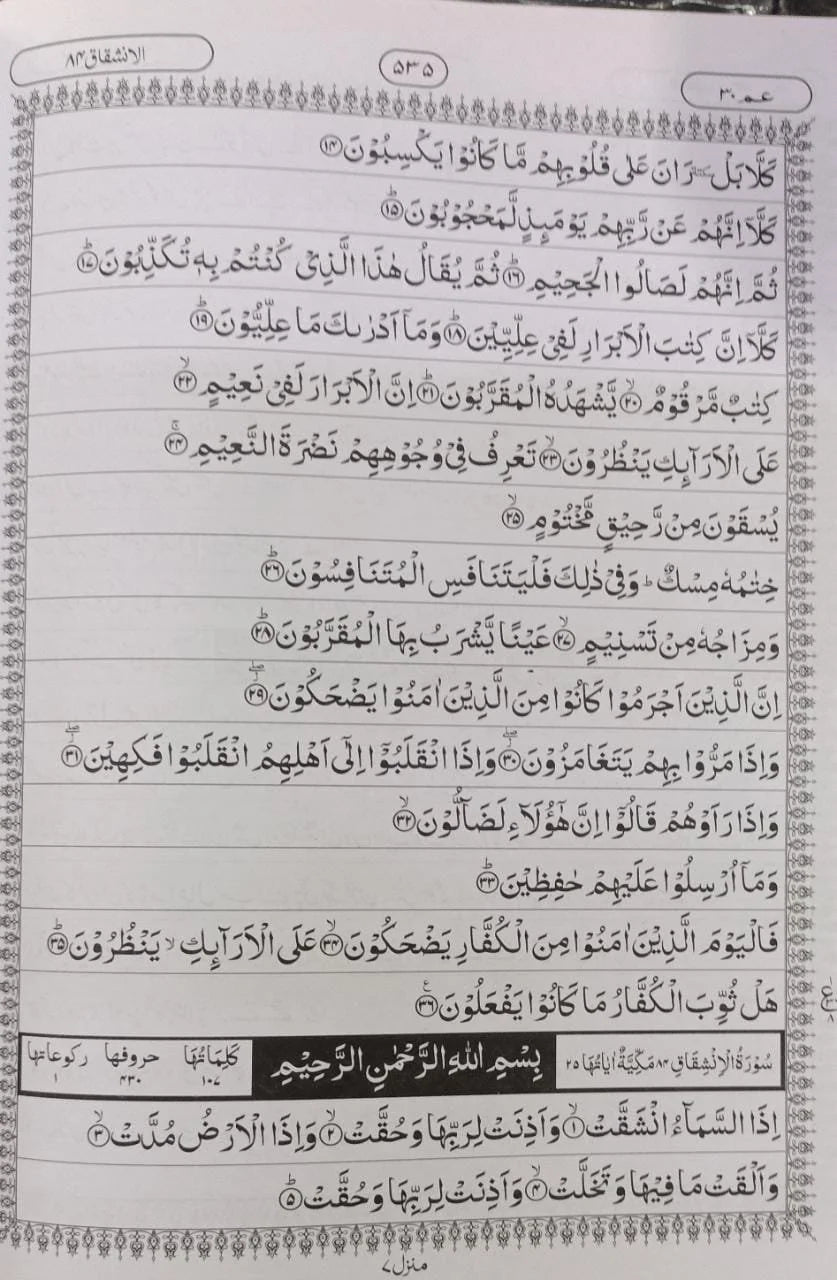 الانشقاق ۸۴
۵۳۵
عم ۳۰
كَلَّا بَلْ سكتة رَانَ عَلٰى قُلُوْبِهِمْ مَّا كَانُوْا يَكْسِبُوْنَ ۱۴
كَلَّاۤ اِنَّهُمْ عَنْ رَّبِّهِمْ يَوْمَىِٕذٍ لَّمَحْجُوْبُوْنَ ۱۵ؕ
ثُمَّ اِنَّهُمْ لَصَالُوا الْجَحِيْمِ ۱۶ؕ ثُمَّ يُقَالُ هٰذَا الَّذِيْ كُنْتُمْ بِهٖ تُكَذِّبُوْنَ ۱۷ؕ
كَلَّاۤ اِنَّ كِتٰبَ الْاَبْرَارِ لَفِيْ عِلِّيِّيْنَ ۱۸ؕ وَمَاۤ اَدْرٰىكَ مَا عِلِّيُّوْنَ ۱۹ؕ
كِتٰبٌ مَّرْقُوْمٌ ۲۰ۙ يَّشْهَدُهُ الْمُقَرَّبُوْنَ ۲۱ؕ اِنَّ الْاَبْرَارَ لَفِيْ نَعِيْمٍ ۲۲ۙ
عَلَى الْاَرَآىِٕكِ يَنْظُرُوْنَ ۲۳ۙ تَعْرِفُ فِيْ وُجُوْهِهِمْ نَضْرَةَ النَّعِيْمِ ۲۴ۚ
يُسْقَوْنَ مِنْ رَّحِيْقٍ مَّخْتُوْمٍ ۲۵ۙ
خِتٰمُهٗ مِسْكٌ ؕ وَفِيْ ذٰلِكَ فَلْيَتَنَافَسِ الْمُتَنَافِسُوْنَ ۲۶ؕ
وَمِزَاجُهٗ مِنْ تَسْنِيْمٍ ۲۷ۙ عَيْنًا يَّشْرَبُ بِهَا الْمُقَرَّبُوْنَ ۲۸ؕ
اِنَّ الَّذِيْنَ اَجْرَمُوْا كَانُوْا مِنَ الَّذِيْنَ اٰمَنُوْا يَضْحَكُوْنَ ۲۹ۖ
وَاِذَا مَرُّوْا بِهِمْ يَتَغَامَزُوْنَ ۳۰ۖ وَاِذَا انْقَلَبُوْۤا اِلٰۤى اَهْلِهِمُ انْقَلَبُوْا فَكِهِيْنَ ۳۱ۖ
وَاِذَا رَاَوْهُمْ قَالُوْۤا اِنَّ هٰۤؤُلَآءِ لَضَآلُّوْنَ ۳۲ۙ
وَمَاۤ اُرْسِلُوْا عَلَيْهِمْ حٰفِظِيْنَ ۳۳ؕ
فَالْيَوْمَ الَّذِيْنَ اٰمَنُوْا مِنَ الْكُفَّارِ يَضْحَكُوْنَ ۳۴ۙ عَلَى الْاَرَآىِٕكِ ۙ يَنْظُرُوْنَ ۳۵ؕ
هَلْ ثُوِّبَ الْكُفَّارُ مَا كَانُوْا يَفْعَلُوْنَ ۳۶ع
سُوْرَةُ الْاِنْشِقَاقِ ۸۴ مَكِّيَّةٌ اٰيَاتُهَا ۲۵
بِسْمِ اللهِ الرَّحْمٰنِ الرَّحِيْمِ
كَلِمَاتُهَا ۱۰۷ حروفها ۴۳۰ ركوعاتها ۱
اِذَا السَّمَآءُ انْشَقَّتْ ۱ۙ وَاَذِنَتْ لِرَبِّهَا وَحُقَّتْ ۲ۙ وَاِذَا الْاَرْضُ مُدَّتْ ۳ۙ
وَاَلْقَتْ مَا فِيْهَا وَتَخَلَّتْ ۴ۙ وَاَذِنَتْ لِرَبِّهَا وَحُقَّتْ ۵ؕ
منزل ۷